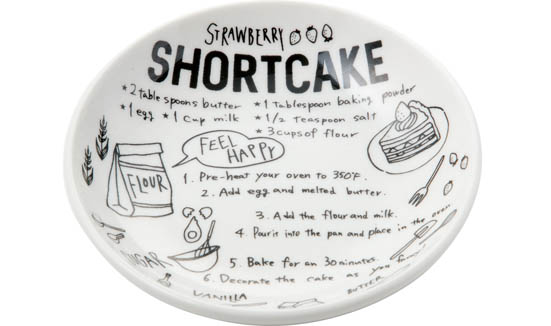 STRAWBERRY
SHORTCAKE
*2 table spoons butter
*1 Tablespoon baking powder
*1 egg *1 cup milk
*1/2 Teaspoon salt
*3 cups of flour
FEEL HAPPY
FLOUR
1. Pre-heat your oven to 350°F.
2. Add egg and melted butter.
3. Add the flour and milk.
4. Pour it into the pan and place in the oven.
5. Bake for an 30 minutes.
6. Decorate the cake as you fancy
SUGAR
VANILLA
BUTTER